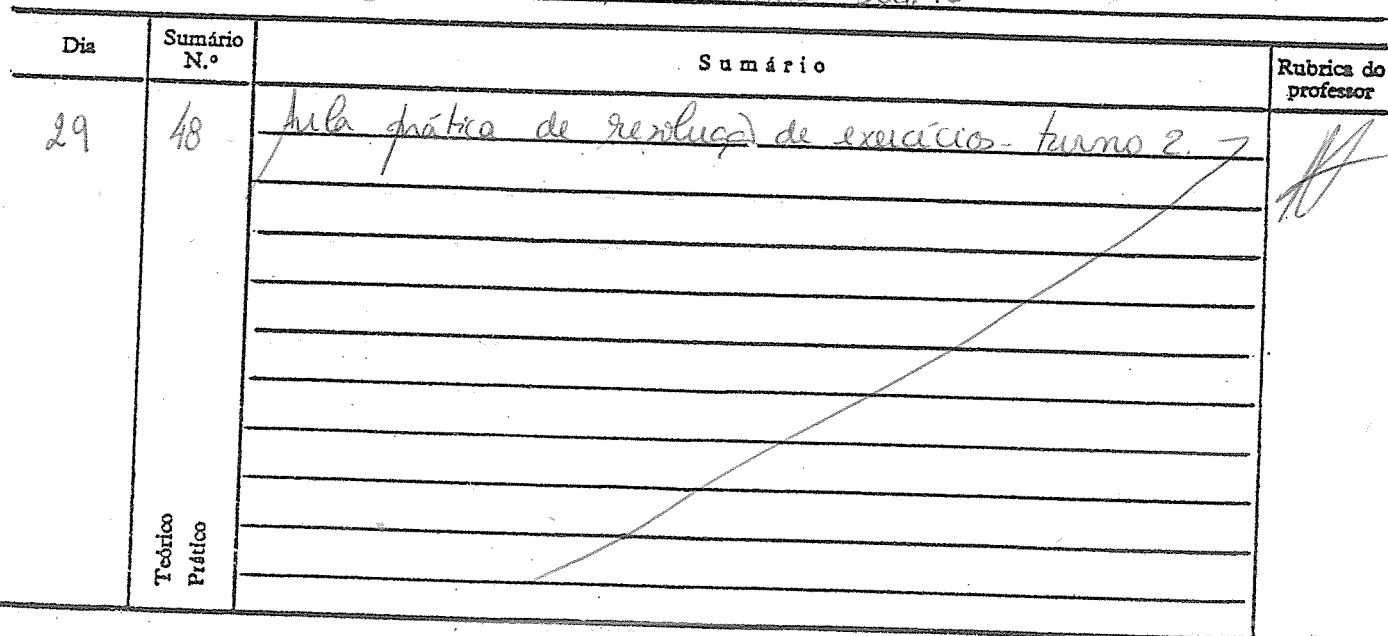 Dia
Sumário N.º
Sumário
Rubrica do professor
29
48
Aula prática de resolução de exercícios - turno 2.
Teórico
Prático